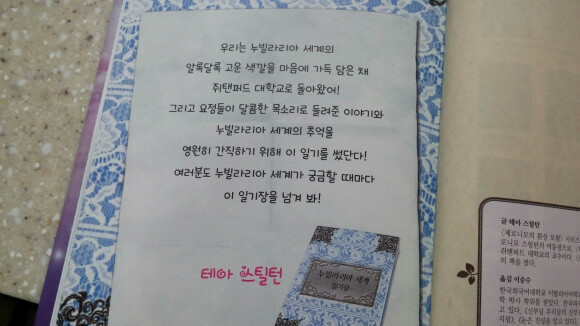 우리는 누빌라리아 세계의
알록달록 고운 색깔을 마음에 가득 담은 채
쥐탠퍼드 대학교로 돌아왔어!
그리고 요정들이 달콤한 목소리로 들려준 이야기와
누빌라리아 세계의 추억을
영원히 간직하기 위해 이 일기를 썼단다!
여러분도 누빌라리아 세계가 궁금할 때마다
이 일기장을 넘겨 봐!
테아 스틸턴
누빌라리아 세계
일기장
글 테아 스틸턴
《제로니모의 환상 모험》 시리즈
로니모 스틸턴의 여동생으로,
쥐탠퍼드 대학교의 교수이다.
의 책을 썼다.
옮김 이승수
한국외국어대학교 이탈리아어
학 박사 학위를 받았다.
고 있다.